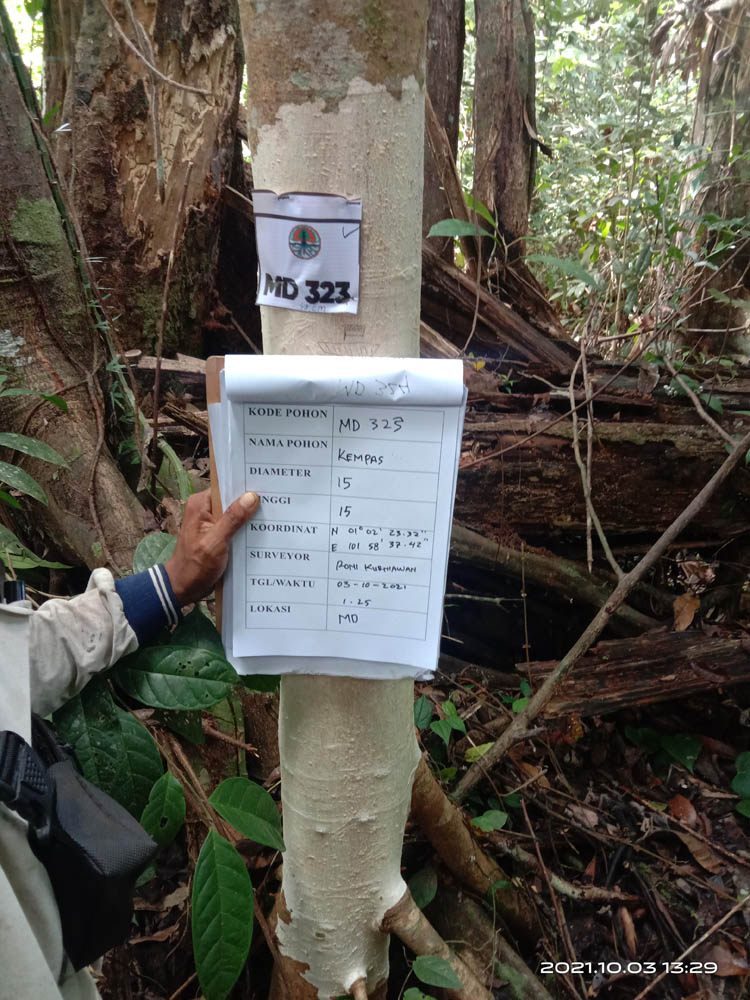 MD 323
KODE POHON MD 323
NAMA POHON KEMPAS
DIAMETER 15
TINGGI 15
KOORDINAT N 01° 02' 23.32"
E 101 58' 37.42"
SURVEYOR RONI KURNIAWAN
TGL/WAKTU 03-10-2021
1.25
LOKASI MD
2021.10.03 13:29